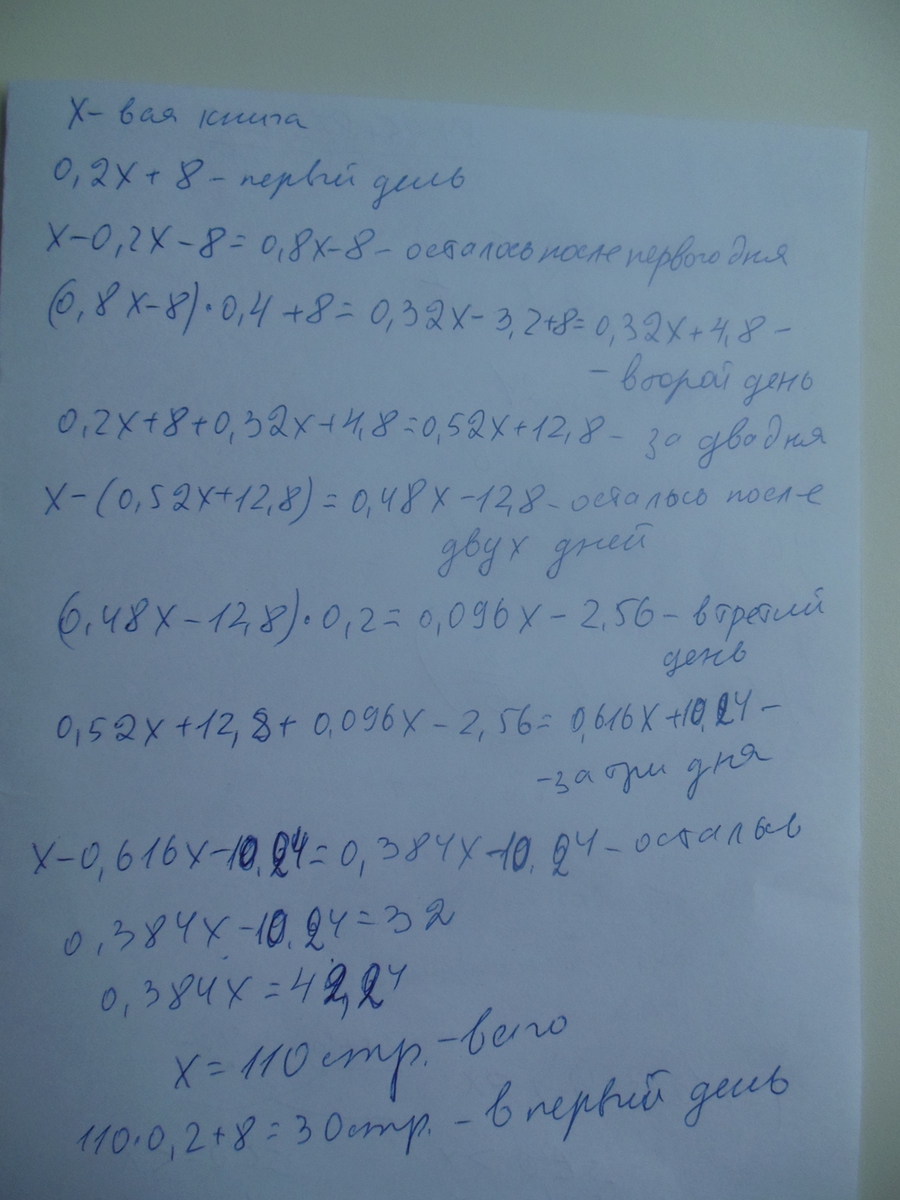 х- вся книга
0,2х + 8 - первый день
х-0,2х-8 = 0,8х-8 - осталось после первого дня
(0,8х-8)·0,4 +8 = 0,32х- 3,2+8= 0,32х+4,8 -
- второй день
0,2х+8+0,32х+4,8=0,52х+12,8 - за два дня
х-(0,52х+12,8) = 0,48х -12,8 - осталось после
двух дней
(0,48х-12,8)·0,2= 0,096х - 2,56 - в третий
день
0,52х+12,8+ 0,096х - 2,56= 0,616х+10,24 -
-за три дня
х-0,616х-10,24= 0,384х-10,24 - осталось
0,384х-10,24=32
0,384х=42,24
х=110 стр. - всего
110·0,2+8=30 стр. - в первый день